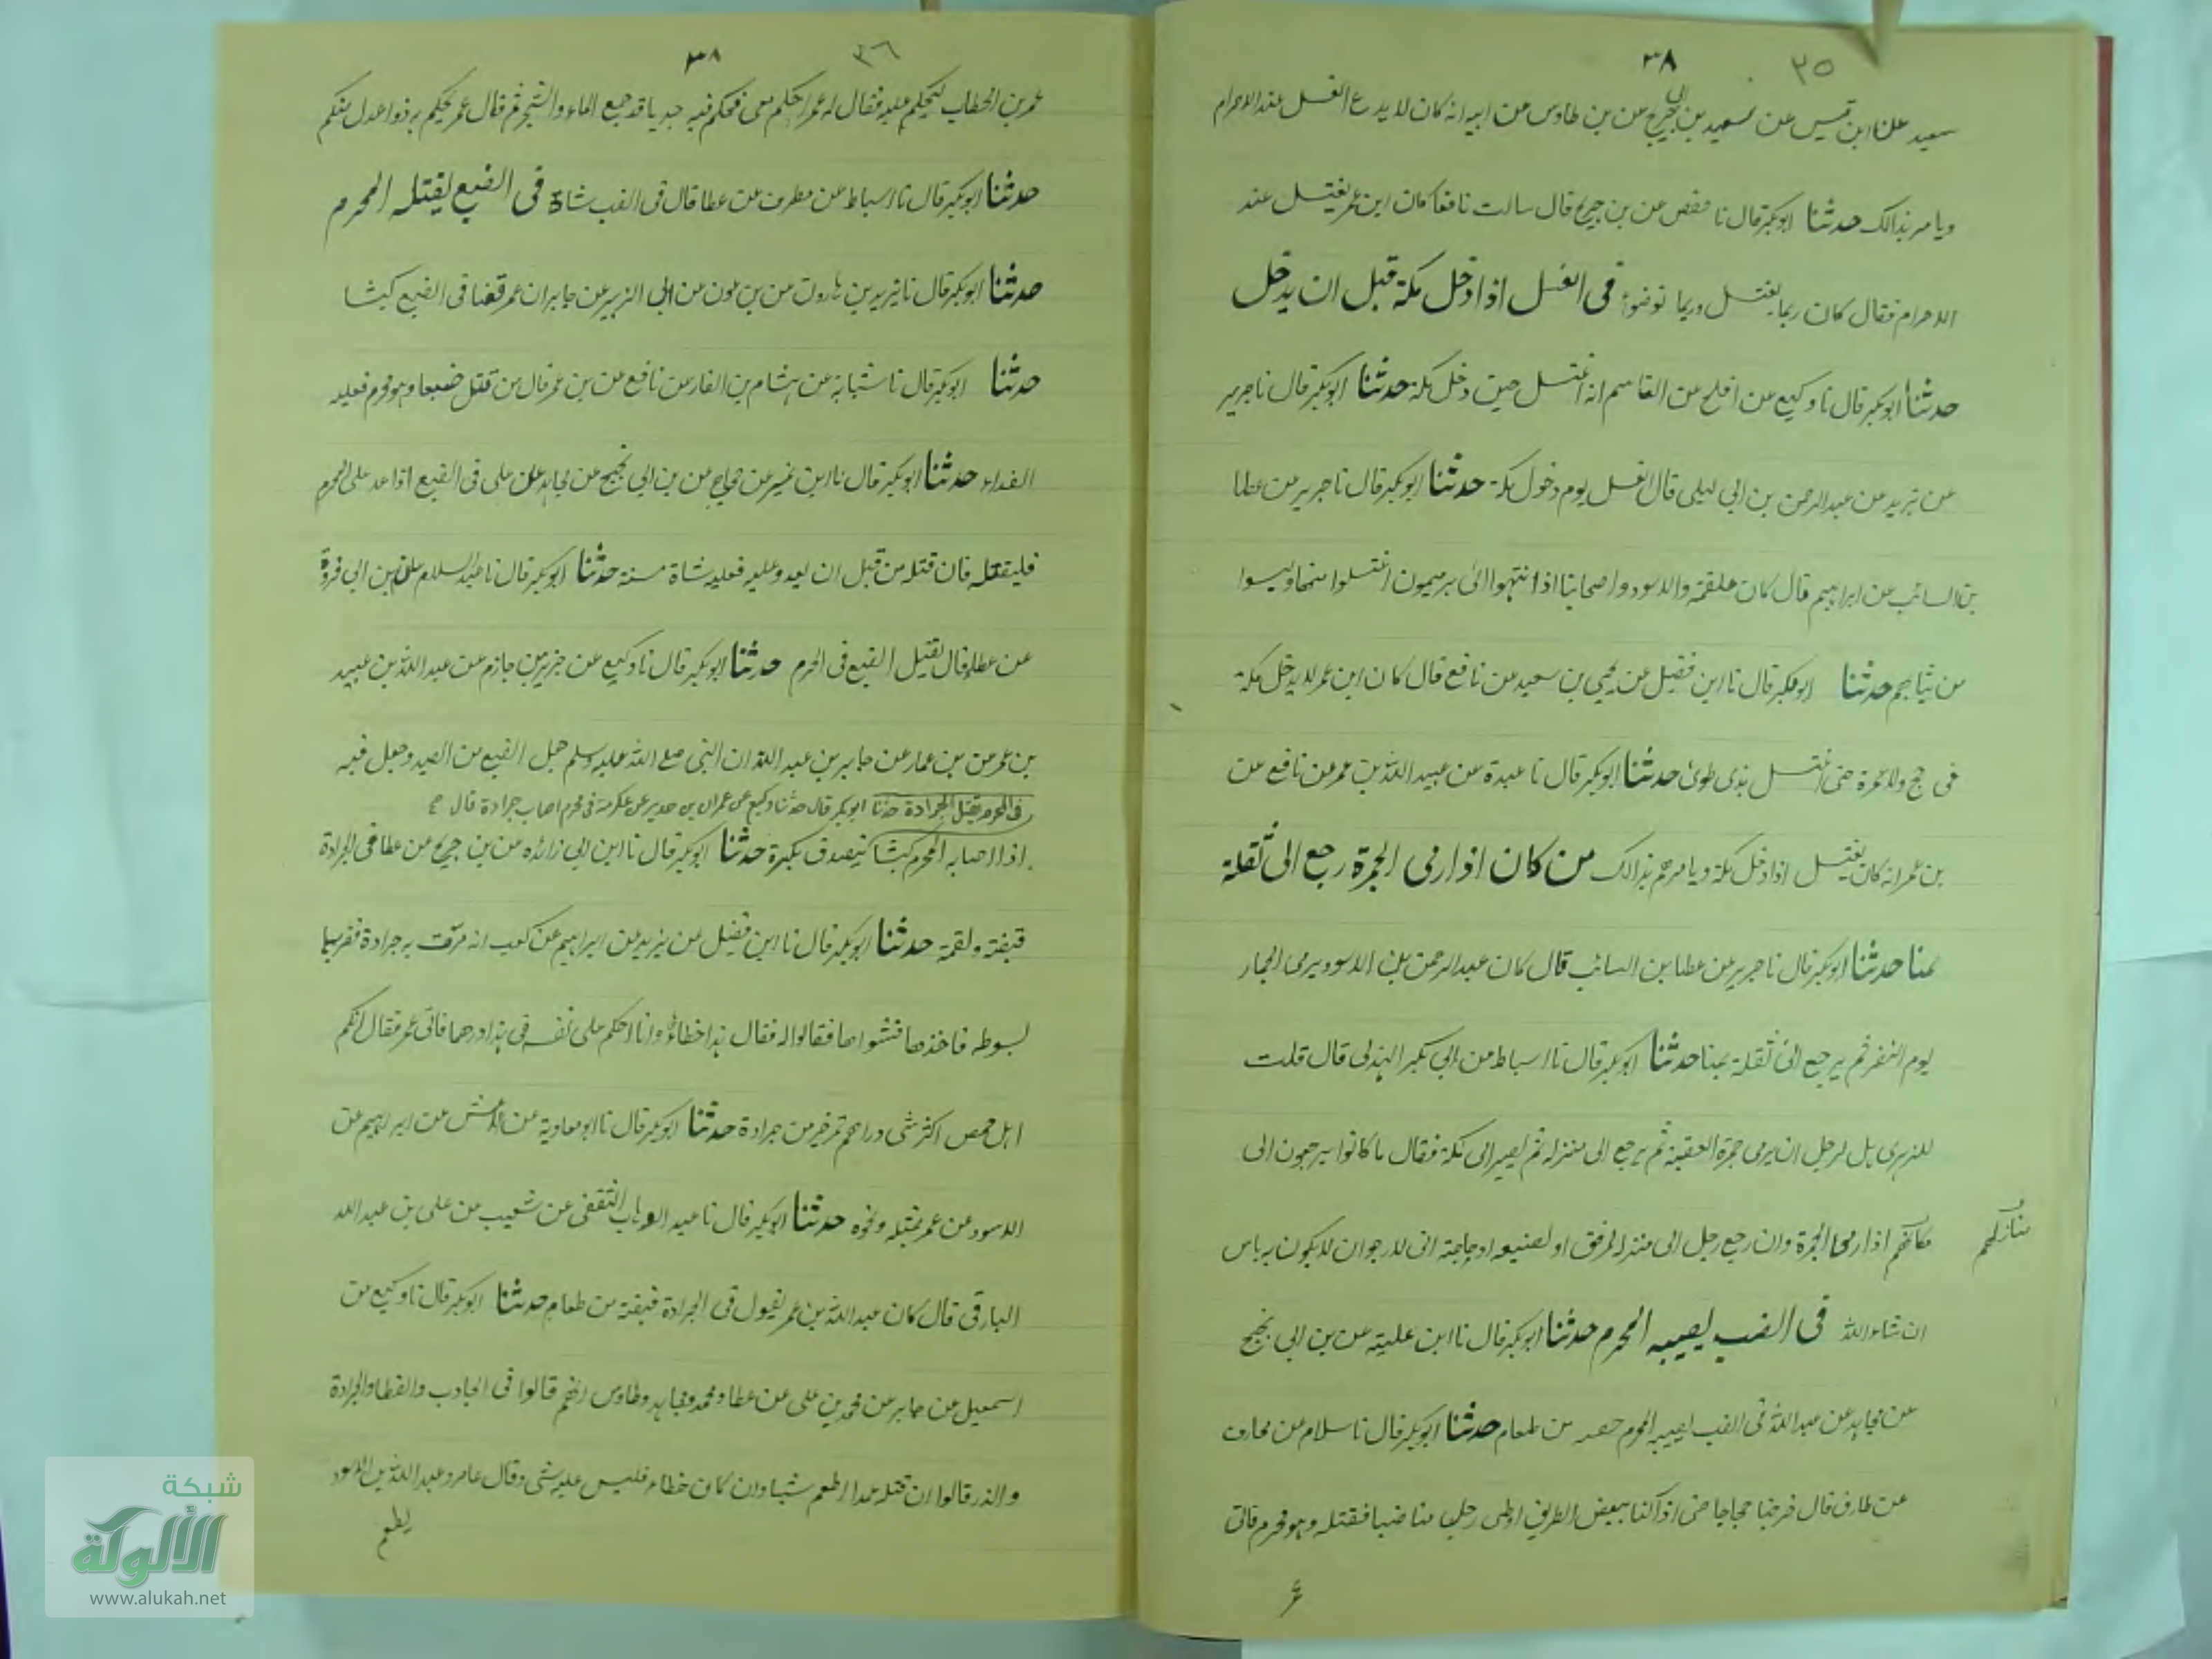 ٣٥ ٣٨
سعيد عن ابن قيس عن سعيد بن جريج عن بن طاوس عن ابيه انه كان لا يدع الغسل عند الاحرام
ويامر بذالك حدثنا ابوبكر قال نا حفص عن بن جريج قال سالت نافعا كان ابن عمر يغتسل عند
الاحرام فقال كان ربما يغتسل وربما توضؤا فى الغسل اذا دخل مكة قبل ان يدخل
حدثنا ابوبكر قال نا وكيع عن افلح عن القاسم انه اغتسل حين دخل مكة حدثنا ابوبكر قال نا جرير
عن يزيد عن عبدالرحمن بن ابى ليلى قال الغسل يوم دخول مكة حدثنا ابوبكر قال نا جرير عن عطا
بن السائب عن ابراهيم قال كان علقمة والاسود واصحابنا اذا انتهوا الى بير ميمون اغتسلوا منها ولبسوا
من ثيابهم حدثنا ابوبكر قال نا ابن فضيل عن يحيى بن سعيد عن نافع قال كان ابن عمر لا يدخل مكة
فى حج ولا عمرة حتى اغتسل بذى طوى حدثنا ابوبكر قال نا عبدة عن عبيد الله بن عمر عن نافع عن
بن عمر انه كان يغتسل اذا دخل مكة ويامرهم بذالك من كان اذا رمى الجمرة رجع الى ثقلة
بمنا حدثنا ابوبكر قال نا جرير عن عطا بن السائب قال كان عبدالرحمن بن الاسود يرمى الجمار
يوم النفر ثم يرجع الى ثقلة بمنا حدثنا ابوبكر قال نا اسباط عن ابى بكر الهذلى قال قلت
للزهرى هل لرجل ان يرمى جمرة العقبة ثم يرجع الى منزله ثم يصير الى مكة فقال ما كانوا يرجعون الى
مكانهم اذا رمى الجمرة وان رجع رجل الى منزله لرفق او لصنيعه او حاجته انى لارجو ان لا يكون به باس
منازلهم
ان شاء الله فى الضب يصيبه المحرم حدثنا ابوبكر قال نا ابن علية عن بن ابى نجيح
عن مجاهد عن عبد الله فى الضب يصيبه المحرم من طعام حدثنا ابوبكر قال نا سلام عن مخارق
عن طارق قال خرجنا حجاجا حتى اذا كنا ببعض الطريق اوطى رجل منا ضبا فقتله وهو محرم فاتى
ع
٣٦ ٣٨
عمر بن الخطاب ليحكم عليه فقال له عمر احكم معى فحكم فيه جديا قد جمع الماء والشجر ثم قال عمر يحكم به ذوا عدل منكم
حدثنا ابوبكر قال نا اسباط عن مطرف عن عطا قال فى الضب شاة فى الضبع يقتله المحرم
حدثنا ابوبكر قال نا يزيد بن هارون عن بن عون عن ابى الزبير عن جابر ان عمر قضا فى الضبع كبشا
حدثنا ابوبكر قال نا شبابة عن هشام بن الغار عن نافع عن بن عمر قال من قتل ضبعا وهو محرم فعليه
الفداء حدثنا ابوبكر قال نا ابن نمير عن حجاج عن بن ابى نجيح عن مجاهد عن على فى الضبع اذا عد على المحرم
فليقتله فان قتله من قبل ان يعد وعليه فعليه شاة مسنة حدثنا ابوبكر قال نا عبد السلام عن بن ابى فروة
عن عطا قال يقتل الضبع فى الحرم حدثنا ابوبكر قال نا وكيع عن جرير بن حازم عن عبد الله بن عبيد
بن عمر عن بن عمار عن جابر بن عبد الله ان النبى صلى الله عليه وسلم جعل الضبع من الصيد وجعل فيه
فى المحرم يقتل الجرادة حدثنا ابوبكر قال حدثنا وكيع عن عمران بن حدير عن عكرمة فى محرم اصاب جرادة قال
اذا اصابه المحرم كبشا يتصدق بكسرة حدثنا ابوبكر قال نا ابن ابى زائده عن بن جريج عن عطا فى الجرادة
قبضة ولقمة حدثنا ابوبكر قال نا ابن فضيل عن يزيد عن ابراهيم عن كعب انه مرت به جرادة فضربها
بسوطه فاخذها فشواها فقالوا له فقال هذا خطاء وانا احكم على نفسى فى هذا درهما فاتى عمر فقال انكم
اهل حمص اكثر شى دراهم تمر خير من جرادة حدثنا ابوبكر قال نا ابو معاوية عن الاعمش عن ابراهيم عن
الاسود عن عمر بمثله ونحوه حدثنا ابوبكر قال نا عبد الوهاب الثقفى عن شعيب عن على بن عبد الله
البارقى قال كان عبد الله بن عمر يقول فى الجرادة قبضة من طعام حدثنا ابوبكر قال نا وكيع عن
اسمعيل عن جابر عن محمد بن على عن عطا ومحمد ومجاهد وطاوس انهم قالوا فى الجنادب والقطا والجرادة
والذر قالوا ان قتله عمدا اطعم شيئا وان كان خطاء فليس عليه شى وقال عامر وعبد الله بن الاسود
يطعم
شبكة
الألوكة
www.alukah.net